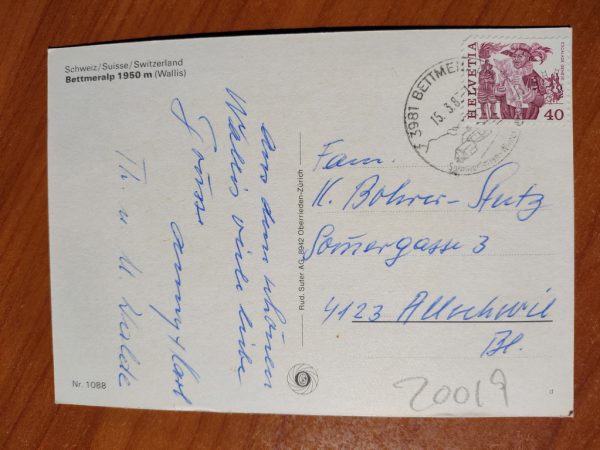 Schweiz/Suisse/Switzerland
Bettmeralp 1950 m (Wallis)
Aus dem schönen
Wallis viele liebe
Grüsse
Th. u. U.
Nr. 1088
Rud. Suter AG, 8942 Oberrieden-Zürich
3981 BETTME
15.3.8
HELVETIA
40
Fam.
K. Bohrer-Stutz
Somergasse 3
4123 Allschwil
Bl.
20019